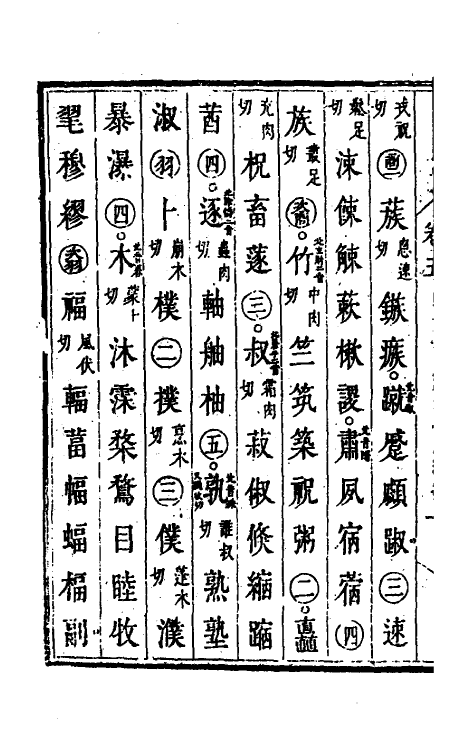 孜祝切 蔟 悤速切 鏃瘯。蹴蹙顣踧㊂速
麤足切 涑餗觫蔌樕謖。肅夙宿蓿㊃
族 叢足切 。竹 中肉切 竺筑築祝粥㊁。矗
充肉切 柷畜蓫㊂。叔 霜肉切 菽俶倏縮蹜
茜㊃。逐 蟲肉切 軸舳柚㊄。孰 誰叔切 熟塾
淑 卜 崩木切 樸㊁撲 烹木切 ㊂僕 蓬木切 濮
暴瀑㊃。木 蒙卜切 沐霂楘鶩目睦牧
毣穆繆 福 風伏切 輻葍幅蝠楅副